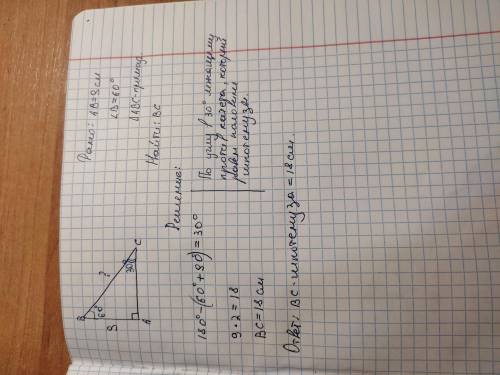 Дано: AB=9см
∠B=60°
△ABC-прямоуг.
Найти: BC
B
60
?
9
30°
A
C
Решение:
180°-(60°+90)=30°
По углу в 30° лежащему
против катета, который
равен половине
гипотенузы.
9•2=18
BC=18см
Ответ: BC-гипотенуза=18см.